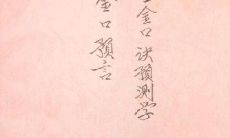 金口诀預测学
金口預言